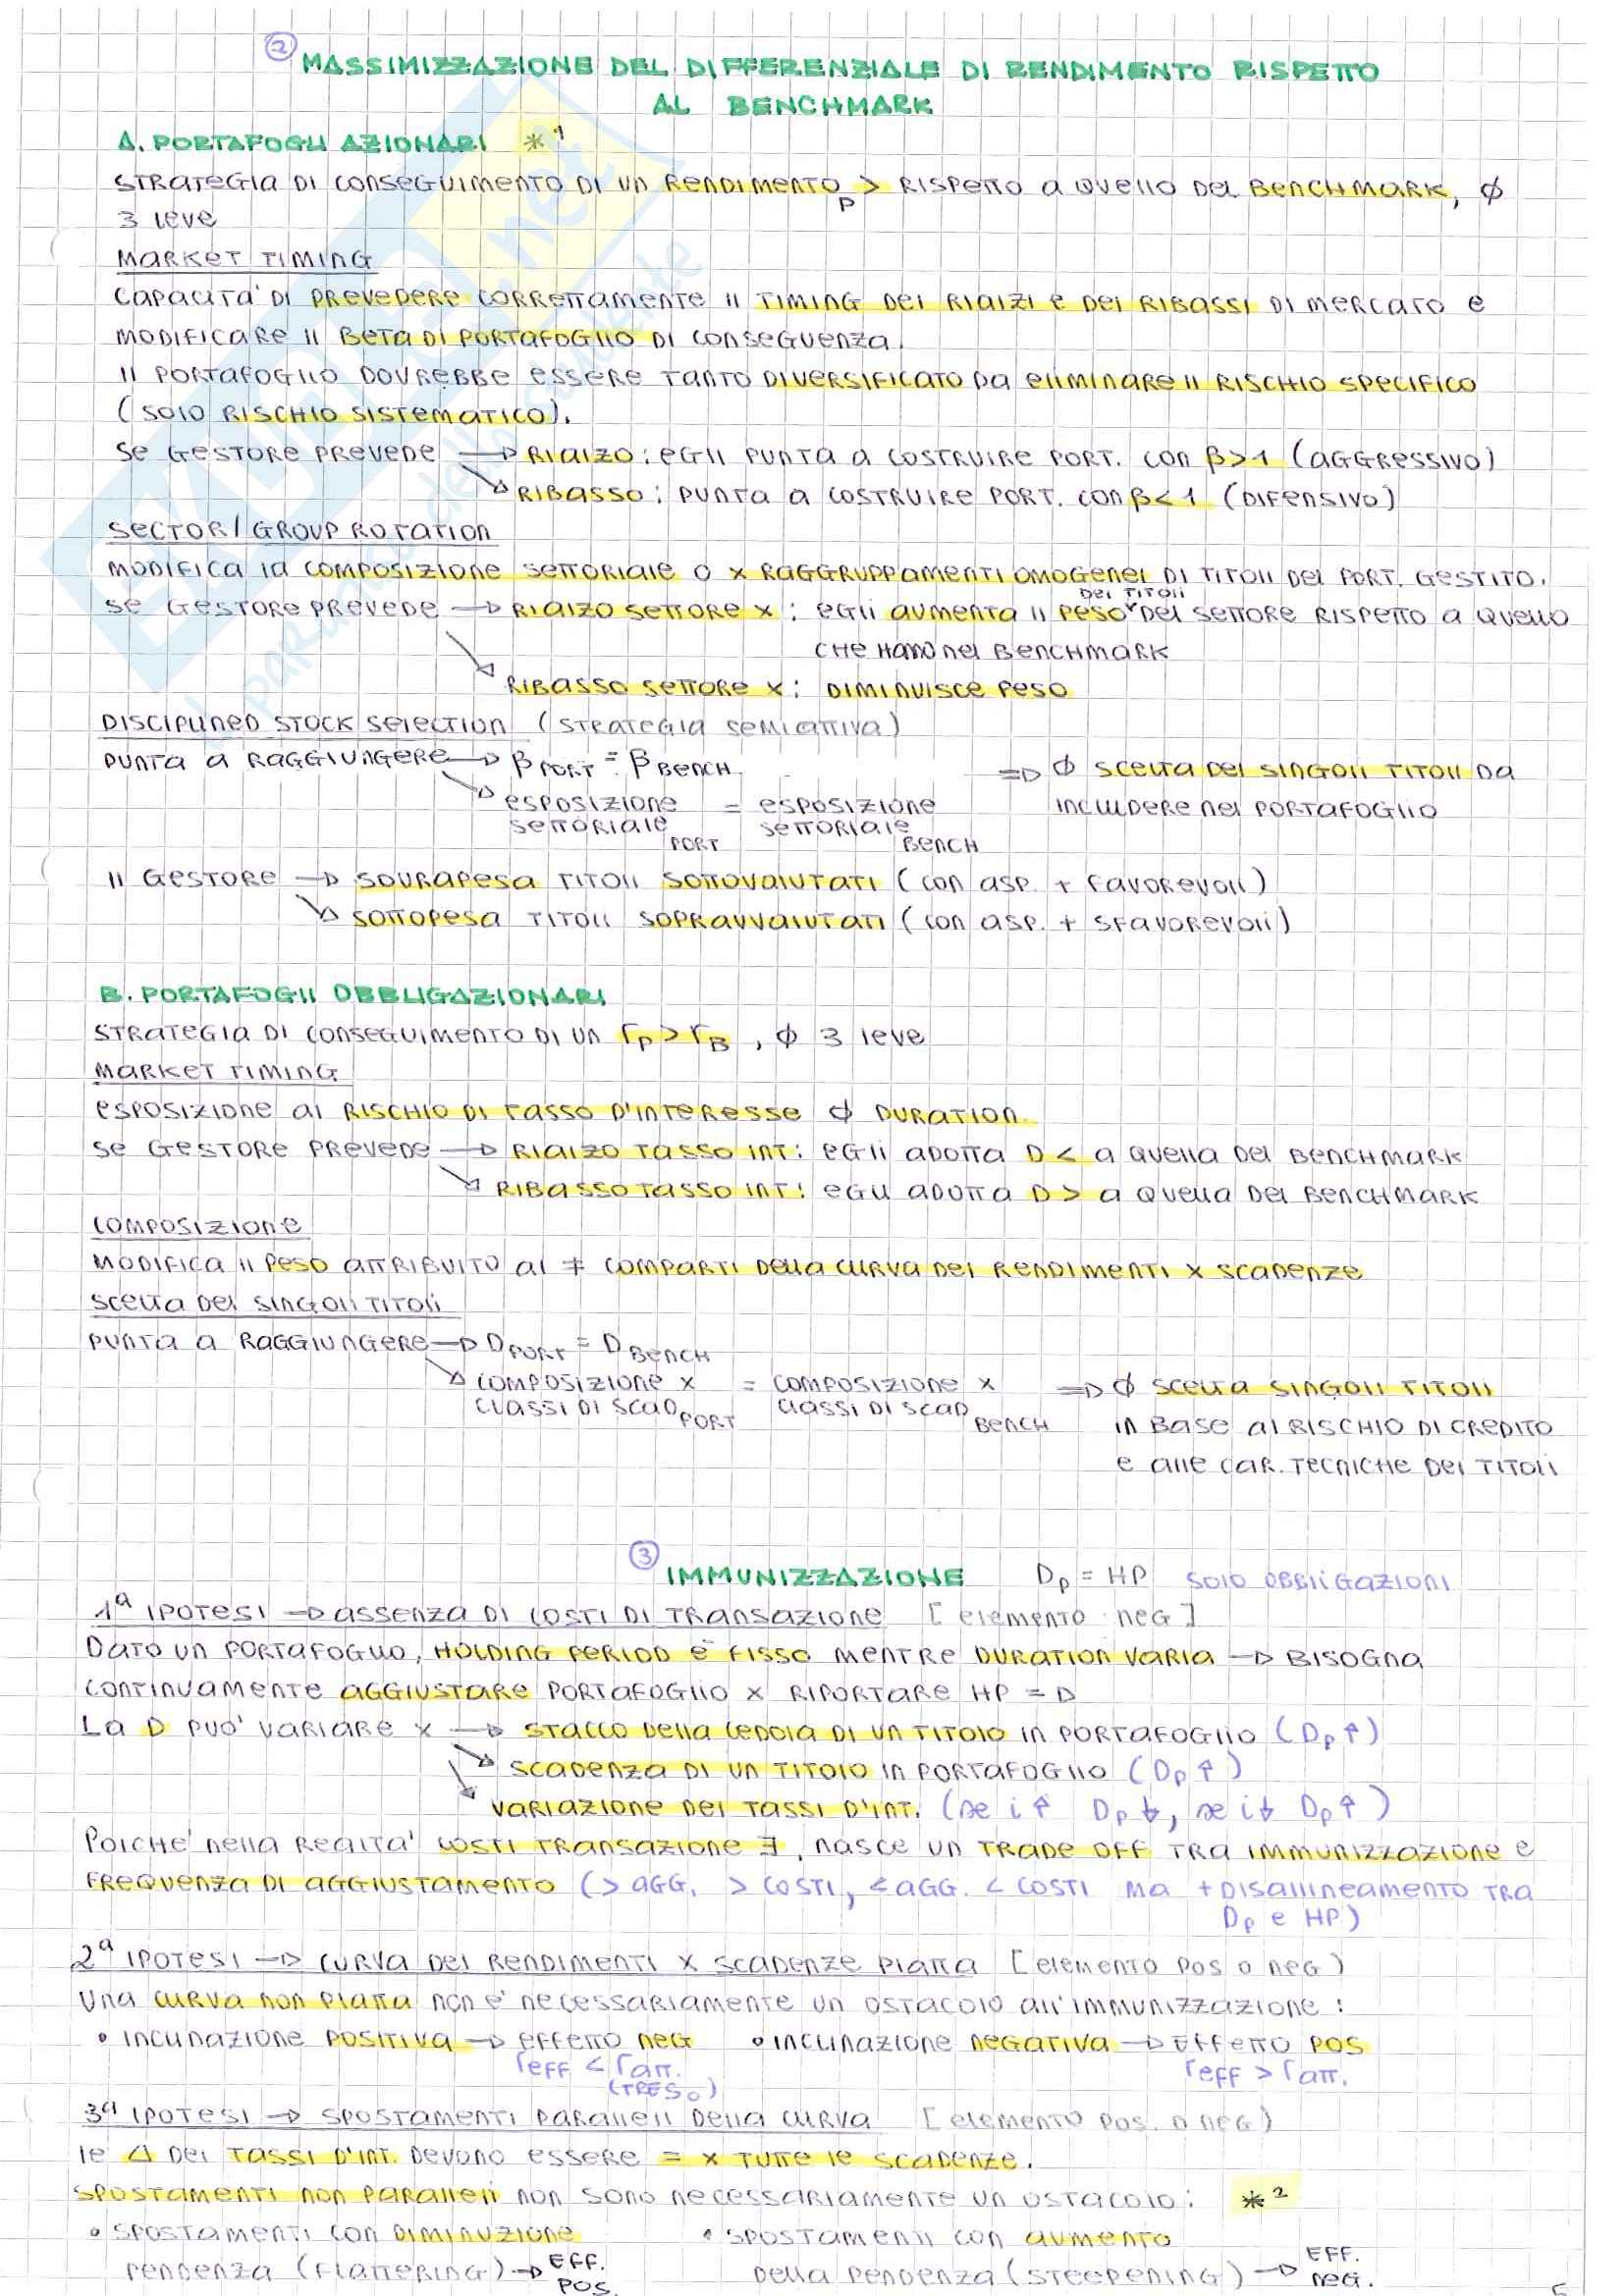 2
MASSIMIZZAZIONE DEL DIFFERENZIALE DI RENDIMENTO RISPETTO
AL BENCHMARK
A. PORTAFOGLI AZIONARI *1
STRATEGIA DI CONSEGUIMENTO DI UN RENDIMENTO P > RISPETTO A QUELLO DEL BENCHMARK, φ
3 LEVE
MARKET TIMING
CAPACITA' DI PREVEDERE CORRETTAMENTE IL TIMING DEI RIALZI E DEI RIBASSI DI MERCATO E
MODIFICARE IL BETA DI PORTAFOGLIO DI CONSEGUENZA.
IL PORTAFOGLIO DOVREBBE ESSERE TANTO DIVERSIFICATO DA ELIMINARE IL RISCHIO SPECIFICO
(SOLO RISCHIO SISTEMATICO).
SE GESTORE PREVEDE → RIALZO: EGLI PUNTA A COSTRUIRE PORT. CON β>1 (AGGRESSIVO)
↘ RIBASSO: PUNTA A COSTRUIRE PORT. CON β<1 (DIFENSIVO)
SECTOR/GROUP ROTATION
MODIFICA LA COMPOSIZIONE SETTORIALE O X RAGGRUPPAMENTI OMOGENEI DI TITOLI DEL PORT. GESTITO.
SE GESTORE PREVEDE → RIALZO SETTORE X: EGLI AUMENTA IL PESO DEI TITOLI DEL SETTORE RISPETTO A QUELLO
CHE HANNO NEL BENCHMARK
↘ RIBASSO SETTORE X: DIMINUISCE PESO
DISCIPLINED STOCK SELECTION (STRATEGIA SEMIATTIVA)
PUNTA A RAGGIUNGERE → β PORT = β BENCH ⇒ φ SCELTA DEI SINGOLI TITOLI DA
↘ ESPOSIZIONE = ESPOSIZIONE INCLUDERE NEL PORTAFOGLIO
SETTORIALE PORT SETTORIALE BENCH
IL GESTORE → SOVRAPESA TITOLI SOTTOVALUTATI (CON ASP. + FAVOREVOLI)
↘ SOTTOPESA TITOLI SOPRAVVALUTATI (CON ASP. + SFAVOREVOLI)
B. PORTAFOGLI OBBLIGAZIONARI
STRATEGIA DI CONSEGUIMENTO DI UN rP > rB, φ 3 LEVE
MARKET TIMING
ESPOSIZIONE AL RISCHIO DI TASSO D'INTERESSE φ DURATION.
SE GESTORE PREVEDE → RIALZO TASSO INT: EGLI ADOTTA D < A QUELLA DEL BENCHMARK
↘ RIBASSO TASSO INT: EGLI ADOTTA D > A QUELLA DEL BENCHMARK
COMPOSIZIONE
MODIFICA IL PESO ATTRIBUITO AI ≠ COMPARTI DELLA CURVA DEI RENDIMENTI X SCADENZE
SCELTA DEI SINGOLI TITOLI
PUNTA A RAGGIUNGERE → D PORT = D BENCH
↘ COMPOSIZIONE X = COMPOSIZIONE X ⇒ φ SCELTA SINGOLI TITOLI
CLASSI DI SCAD PORT CLASSI DI SCAD BENCH IN BASE AL RISCHIO DI CREDITO
E ALLE CAR. TECNICHE DEI TITOLI
3
IMMUNIZZAZIONE DP = HP SOLO OBBLIGAZIONI
1ª IPOTESI → ASSENZA DI COSTI DI TRANSAZIONE [ELEMENTO NEG]
DATO UN PORTAFOGLIO, HOLDING PERIOD È FISSO MENTRE DURATION VARIA → BISOGNA
CONTINUAMENTE AGGIUSTARE PORTAFOGLIO X RIPORTARE HP = D
LA D PUO' VARIARE X → STACCO DELLA CEDOLA DI UN TITOLO IN PORTAFOGLIO (DP↑)
↘ SCADENZA DI UN TITOLO IN PORTAFOGLIO (DP↑)
↘ VARIAZIONE DEI TASSI D'INT. (se i↑ DP↓, se i↓ DP↑)
POICHE' NELLA REALTA' COSTI TRANSAZIONE ∃, NASCE UN TRADE OFF TRA IMMUNIZZAZIONE E
FREQUENZA DI AGGIUSTAMENTO (> AGG. > COSTI, < AGG. < COSTI MA + DISALLINEAMENTO TRA
DP E HP)
2ª IPOTESI → CURVA DEI RENDIMENTI X SCADENZE PIATTA [ELEMENTO POS O NEG)
UNA CURVA NON PIATTA NON E' NECESSARIAMENTE UN OSTACOLO ALL'IMMUNIZZAZIONE:
• INCLINAZIONE POSITIVA → EFFETTO NEG • INCLINAZIONE NEGATIVA → EFFETTO POS
rEFF < rATT. rEFF > rATT.
(TRESO)
3ª IPOTESI → SPOSTAMENTI PARALLELI DELLA CURVA [ELEMENTO POS. O NEG)
LE Δ DEI TASSI D'INT. DEVONO ESSERE = X TUTTE LE SCADENZE.
SPOSTAMENTI NON PARALLELI NON SONO NECESSARIAMENTE UN OSTACOLO: *2
• SPOSTAMENTI CON DIMINUZIONE • SPOSTAMENTI CON AUMENTO
PENDENZA (FLATTERING) → EFF. POS. DELLA PENDENZA (STEEPENING) → EFF. NEG.